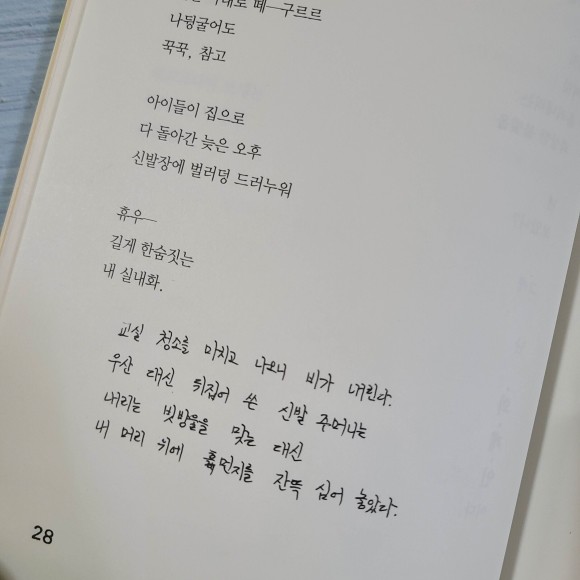 대로 떼—구르르
나뒹굴어도
꾹꾹, 참고
아이들이 집으로
다 돌아간 늦은 오후
신발장에 벌러덩 드러누워
휴우—
길게 한숨짓는
내 실내화.
교실 청소를 마치고 나오니 비가 내린다.
우산 대신 뒤집어 쓴 신발 주머니는
내리는 빗방울을 맞는 대신
내 머리 위에 흙먼지를 잔뜩 심어 놓았다.
28